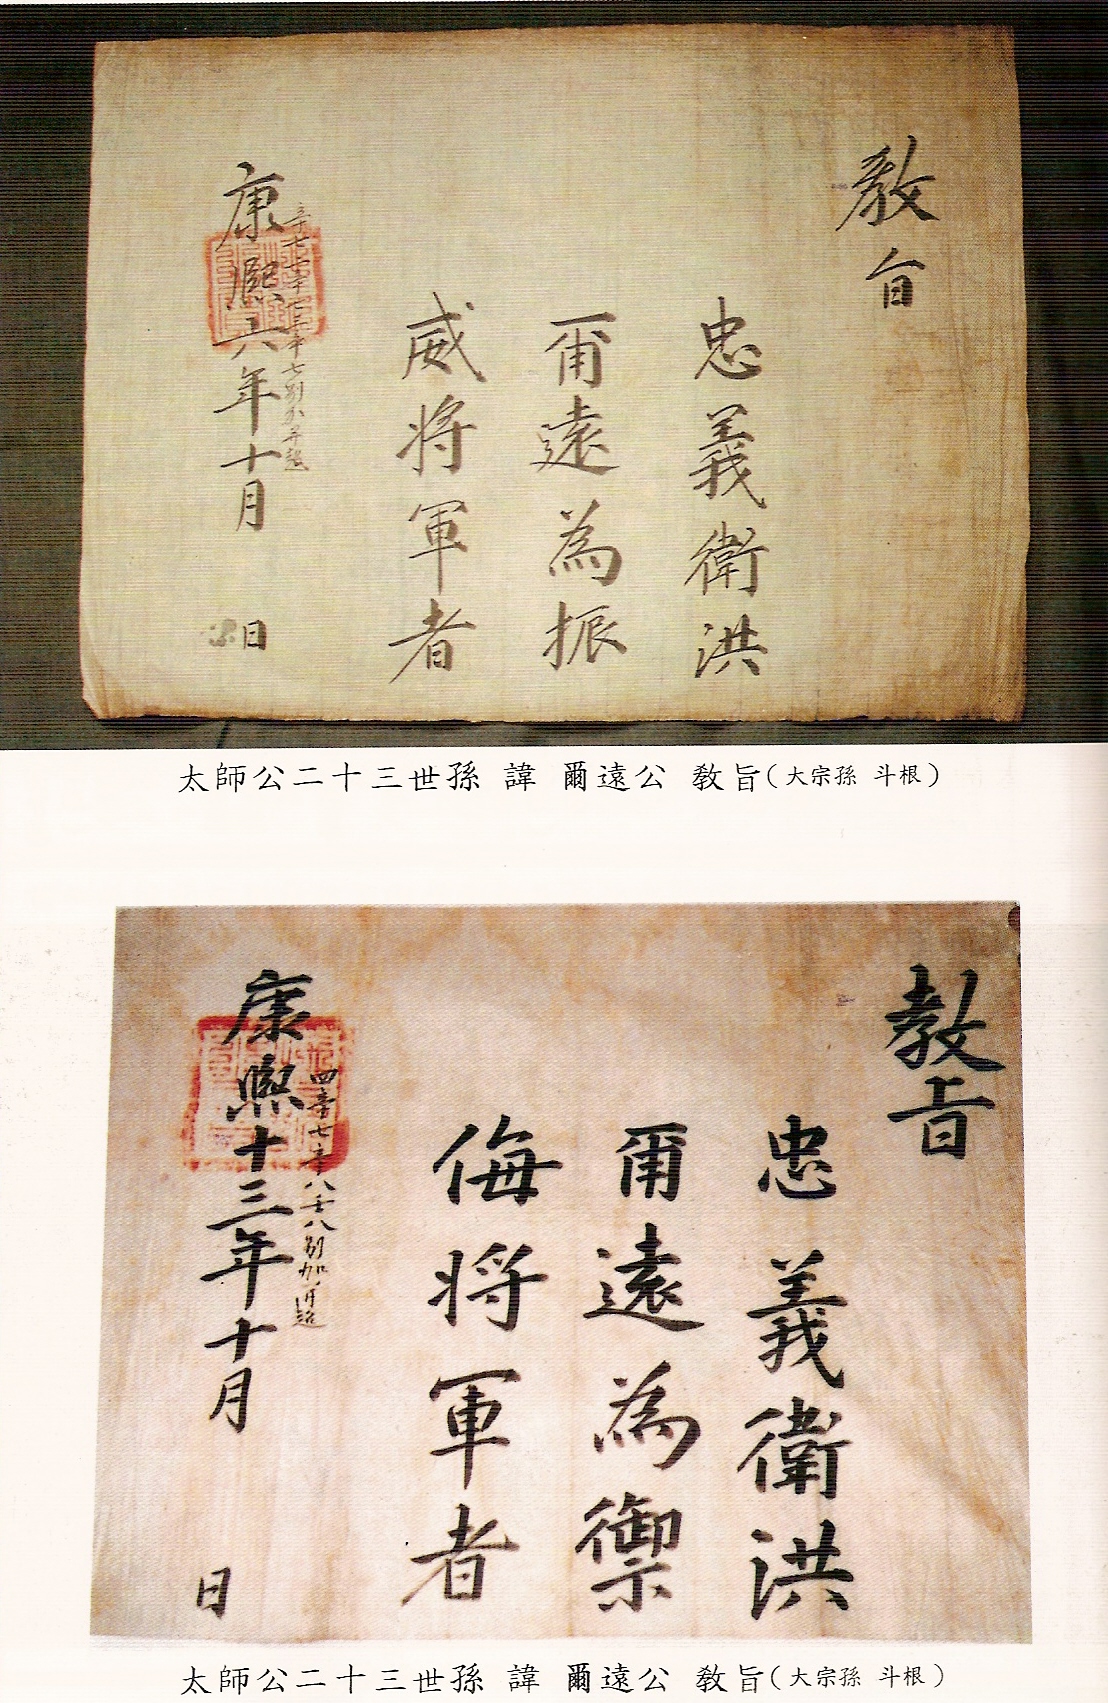 敎旨
忠義衛洪
爾遠為振
威將軍者
康熙六年十月
日
太師公二十三世孫 諱 爾遠公 敎旨(大宗孫 斗根)
敎旨
忠義衛洪
爾遠為禦
侮將軍者
康熙十三年十月
日
太師公二十三世孫 諱 爾遠公 敎旨(大宗孫 斗根)